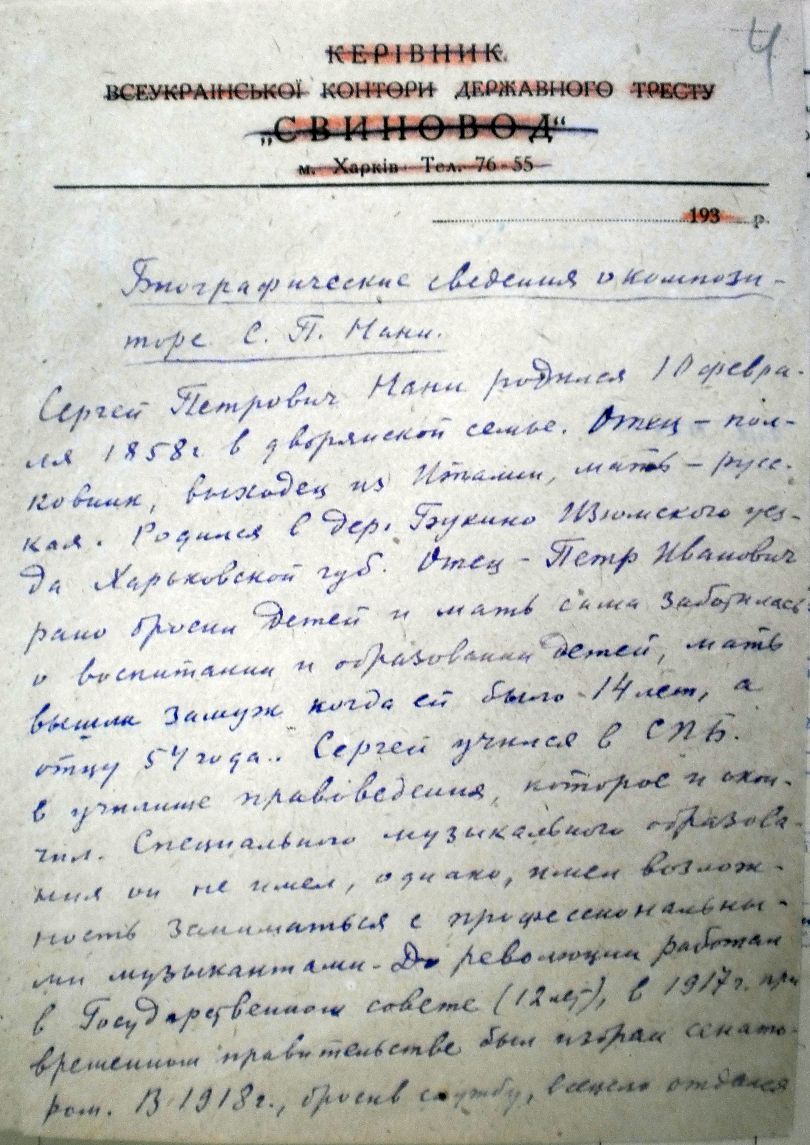 4
КЕРІВНИК
ВСЕУКРАЇНСЬКОЇ КОНТОРИ ДЕРЖАВНОГО ТРЕСТУ
„СВИНОВОД“
м. Харків Тел. 76-55
193 р.
Биографические сведения о компози-
торе С. П. Нани.
Сергей Петрович Нани родился 10 февра-
ля 1858г в дворянской семье. Отец – пол-
ковник, выходец из Италии, мать – русс-
кая. Родился в дер. Букино Изюмского уез-
да Харьковской губ. Отец – Петр Иванович
рано бросил детей и мать сама заботилась
о воспитании и образовании детей, мать
вышла замуж когда ей было 14 лет, а
отцу 54 года.. Сергей учился в СПБ.
в училище правоведения, которое и окон-
чил. Специального музыкального образова-
ния он не имел, однако, имел возмож-
ность заниматься с профессиональны-
ми музыкантами. До революции работал
в Государственном совете (12 лет), в 1917 г. при
временном правительстве был избран сенато-
ром. В 1918 г., бросив службу, всецело отдался